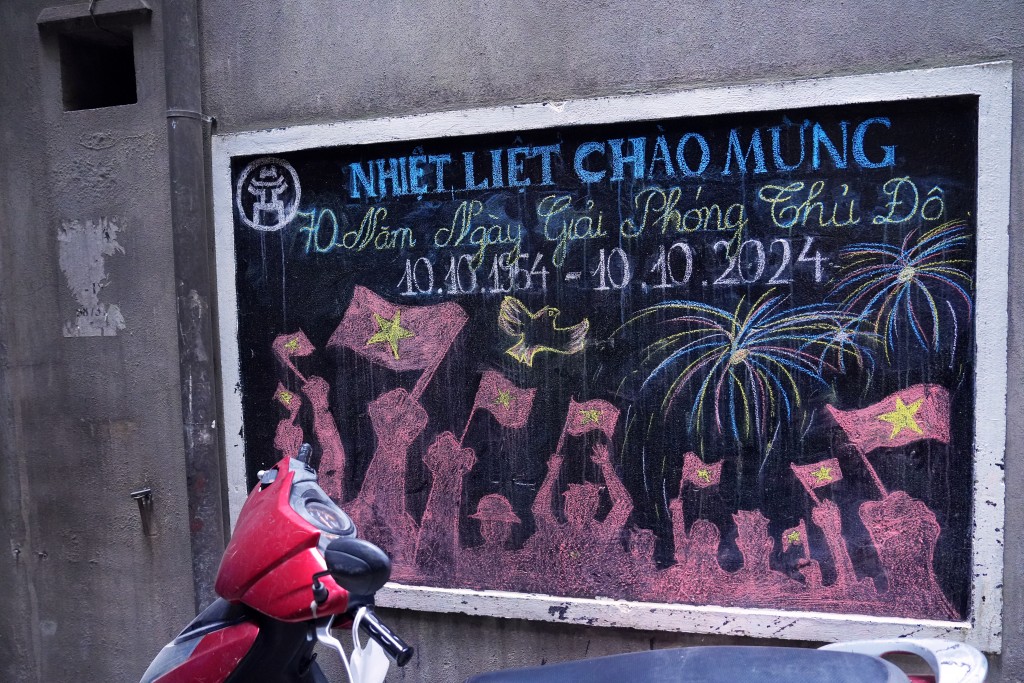 NHIỆT LIỆT CHÀO MỪNG
70 Năm Ngày Giải Phóng Thủ Đô
10.10.1954 - 10.10.2024